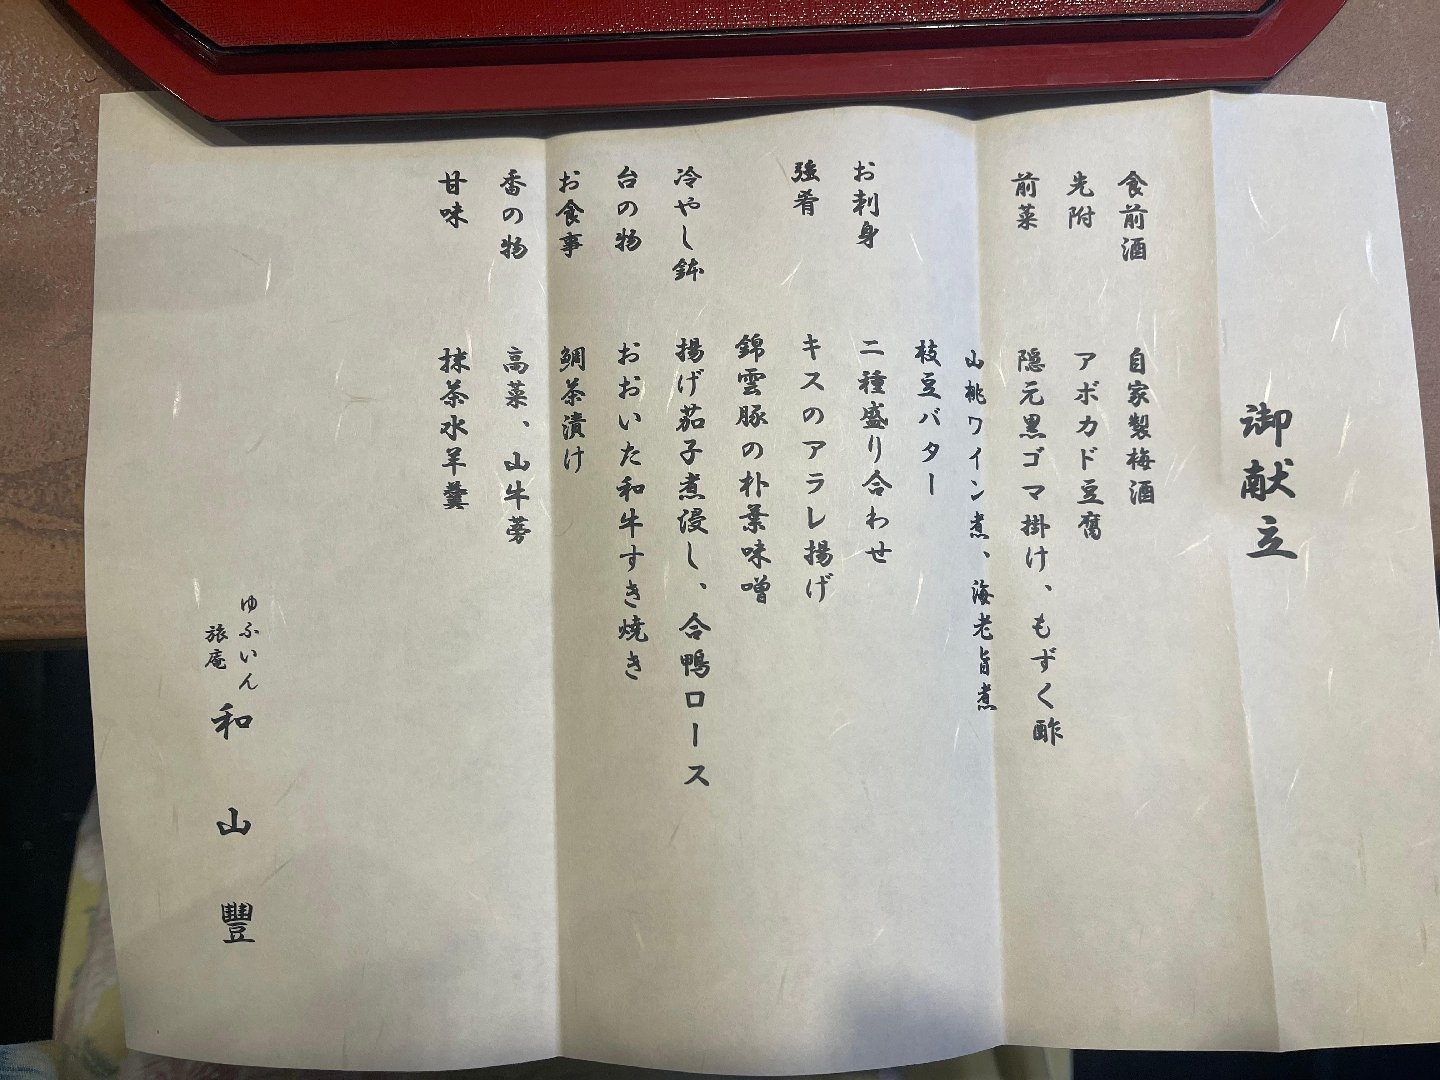 御献立
食前酒 自家製梅酒
先附 アボカド豆腐
前菜 隠元黒ゴマ掛け、もずく酢
山桃ワイン煮、海老旨煮
枝豆バター
お刺身 二種盛り合わせ
強肴 キスのアラレ揚げ
錦雲豚の朴葉味噌
冷やし鉢 揚げ茄子煮浸し、合鴨ロース
台の物 おおいた和牛すき焼き
お食事 鯛茶漬け
香の物 高菜、山牛蒡
甘味 抹茶水羊羹
ゆふいん
旅庵
和山豐